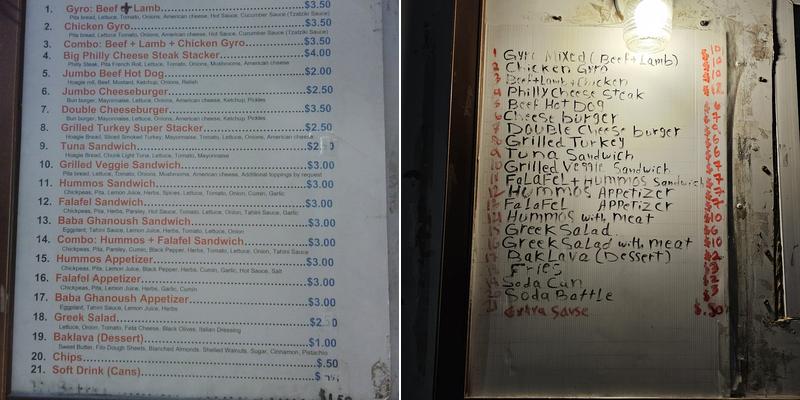 1. Gyro: Beef + Lamb $3.50
Pita bread, Lettuce, Tomato, Onions, American cheese, Hot Sauce, Cucumber Sauce (Tzatziki Sauce)
2. Chicken Gyro $3.50
Pita bread, Lettuce, Tomato, Onions, American cheese, Hot Sauce, Cucumber Sauce (Tzatziki Sauce)
3. Combo: Beef + Lamb + Chicken Gyro $3.50
4. Big Philly Cheese Steak Stacker $4.00
Philly Steak, Pita French Roll, Lettuce, Tomato, Onions, Mushrooms, American cheese
5. Jumbo Beef Hot Dog $2.00
Hoagie roll, Beef, Mustard, Ketchup, Onions, Relish
6. Jumbo Cheeseburger $2.50
Bun burger, Mayonnaise, Lettuce, Onions, American cheese, Ketchup, Pickles
7. Double Cheeseburger $3.50
Bun burger, Mayonnaise, Lettuce, Onions, American cheese, Ketchup, Pickles
8. Grilled Turkey Super Stacker $2.50
Hoagie Bread, Sliced Smoked Turkey, Mayonnaise, Tomato, Lettuce, Onions, American cheese
9. Tuna Sandwich
Hoagie Bread, Chunk Light Tuna, Lettuce, Tomato, Mayonnaise
10. Grilled Veggie Sandwich $3.00
Pita bread, Lettuce, Tomato, Onions, Mushrooms, American cheese, Additional toppings by request
11. Hummos Sandwich $3.00
Chickpeas, Pita, Lemon Juice, Herbs, Spices, Lettuce, Tomato, Onion, Cumin, Garlic
12. Falafel Sandwich $3.00
Chickpeas, Pita, Herbs, Parsley, Hot Sauce, Tomato, Lettuce, Onion, Tahini Sauce, Garlic
13. Baba Ghanoush Sandwich $3.00
Eggplant, Tahini Sauce, Lemon Juice, Herbs, Tomato, Lettuce, Onion
14. Combo: Hummos + Falafel Sandwich $3.00
Chickpeas, Pita, Parsley, Cumin, Black Pepper, Herbs, Tomato, Lettuce, Onion, Tahini Sauce
15. Hummos Appetizer $3.00
Chickpeas, Pita, Lemon Juice, Black Pepper, Herbs, Cumin, Garlic, Hot Sauce, Salt
16. Falafel Appetizer $3.00
Chickpeas, Pita, Lemon Juice, Herbs, Garlic, Cumin
17. Baba Ghanoush Appetizer $3.00
Eggplant, Tahini Sauce, Lemon Juice, Herbs
18. Greek Salad
Lettuce, Onion, Tomato, Feta Cheese, Black Olives, Italian Dressing
19. Baklava (Dessert) $1.00
Sweet Butter, Filo Dough Sheets, Blanched Almonds, Shelled Walnuts, Sugar, Cinnamon, Pistachio
20. Chips $.50
21. Soft Drink (Cans) $
Gyro Mixed (Beef + Lamb)
Chicken Gyro
Beef + Lamb + Chicken
Philly Cheese Steak
Beef Hot Dog
Cheese burger
Double Cheese burger
Grilled Turkey
Tuna Sandwich
Grilled Veggie Sandwich
Falafel + Hummos Sandwich
Hummos Appetizer
Falafel Appetizer
Hummos with meat
Greek Salad
Greek Salad with meat
Baklava (Dessert)
Fries
Soda Can
Soda Bottle
Extra Sause $.50